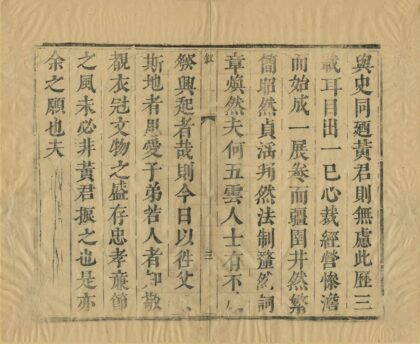 與史同廼黄君則無慮此歷三
載耳目出一已心裁經營慘澹
而始成一展卷而疆圉井然繁
簡昭然貞淫判然法制釐然詞
章煥然夫何五雲人士有不
發興起者哉則今日以徃父
斯地者愚愛子弟若人者知敬
覩衣冠文物之盛存忠孝亷節
之風未必非黄君振之也是亦
余之願也夫
敘
三